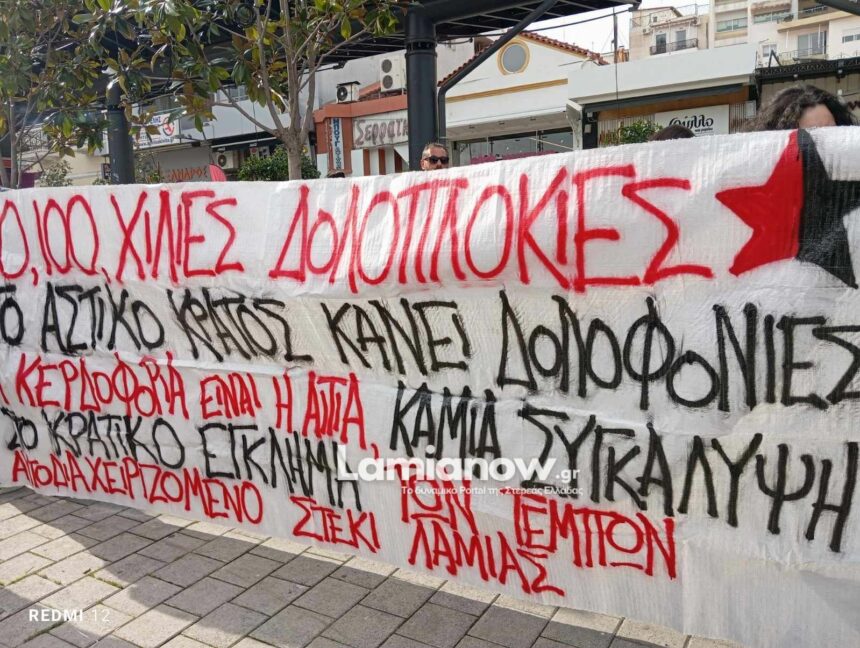 0, 100, ΧΙΛΙΕΣ ΔΟΛΟΠΛΟΚΙΕΣ
Ο ΑΣΤΙΚΟ ΚΡΑΤΟΣ ΚΑΝΕΙ ΔΟΛΟΦΟΝΙΕΣ
Η ΚΕΡΔΟΦΟΡΙΑ ΕΙΝΑΙ Η ΑΙΤΙΑ, ΚΑΜΙΑ ΣΥΓΚΑΛΥΨΗ
ΣΤΟ ΚΡΑΤΙΚΟ ΕΓΚΛΗΜΑ ΤΩΝ ΤΕΜΠΩΝ
ΑΥΤΟΔΙΑΧΕΙΡΙΖΟΜΕΝΟ ΣΤΕΚΙ ΛΑΜΙΑΣ
Lamianow.gr
Το δυναμικό Portal της Στερεάς Ελλάδας
REDMI 12